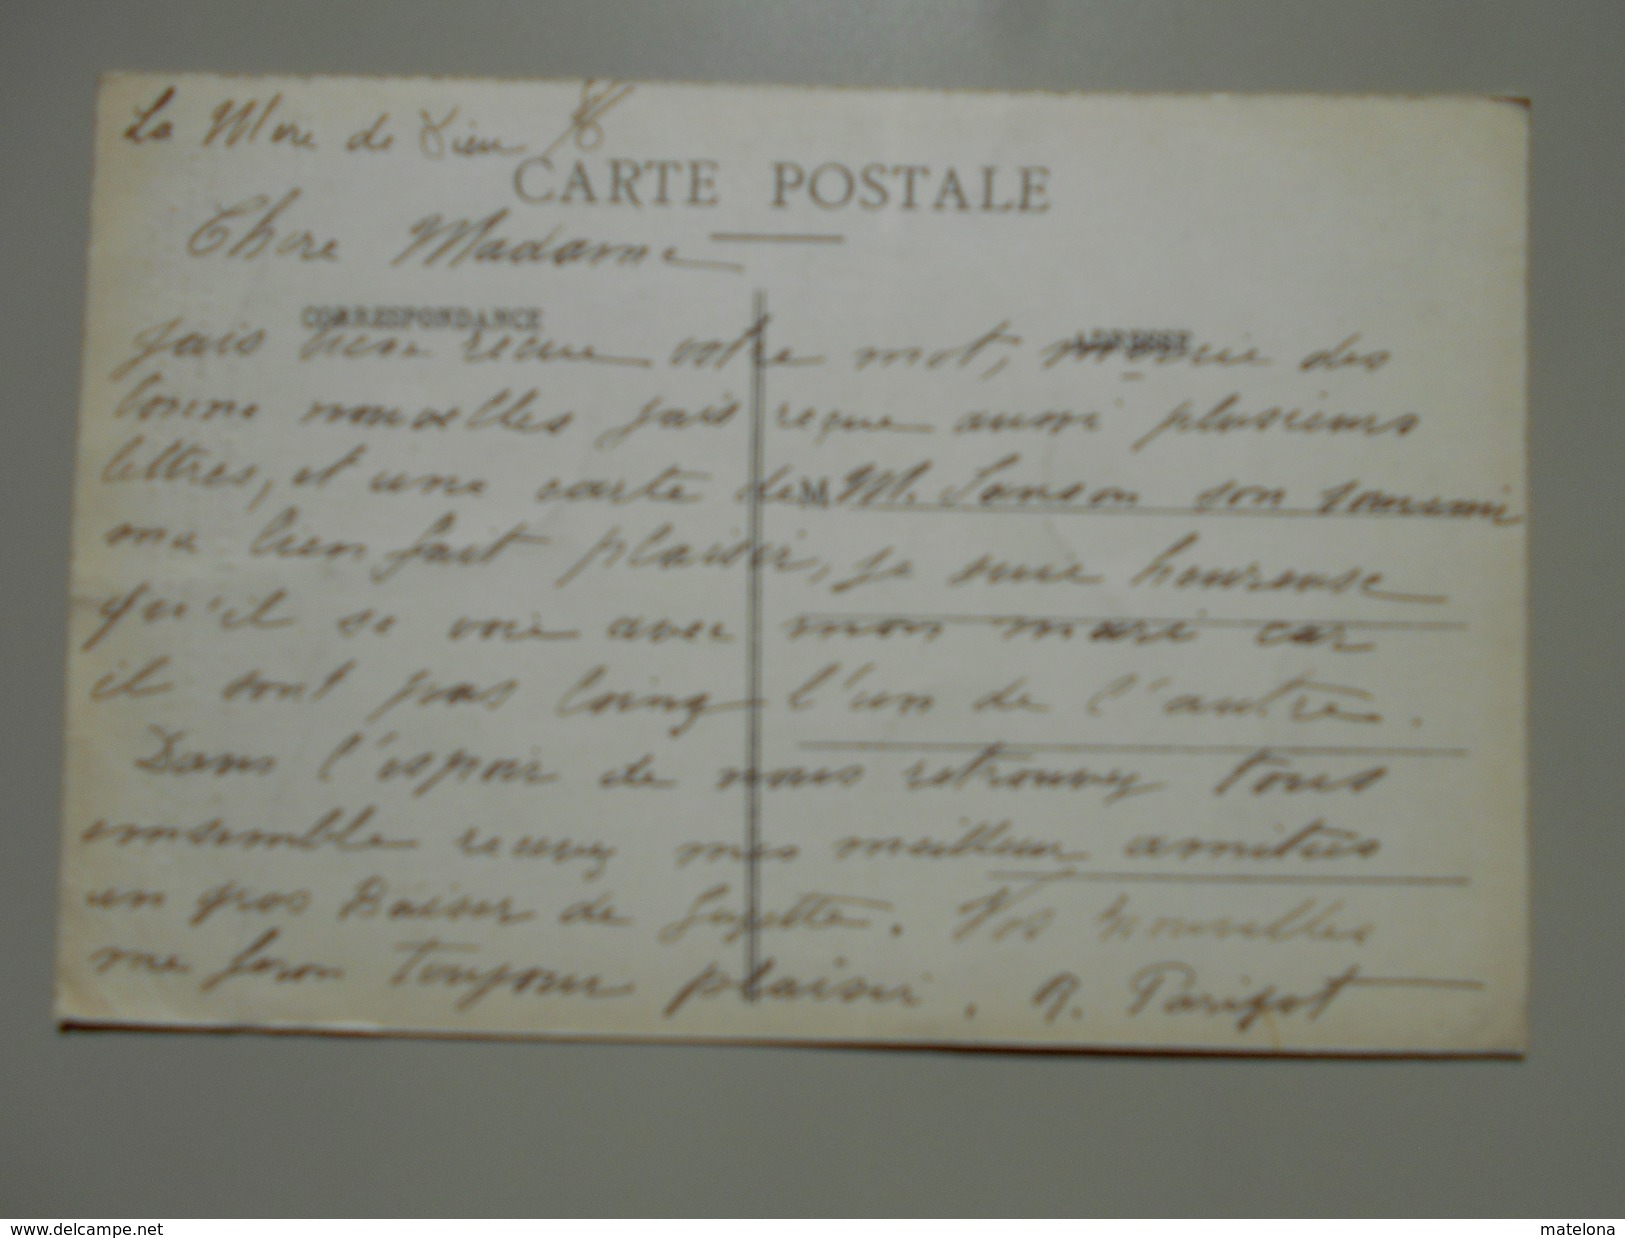 La Mere de Dieu
CARTE POSTALE
Chere Madame
CORRESPONDANCE
ADRESSE
jais bien recue votre mot, merci des
bonne nouvelles jais reçue aussi plusieurs
lettres, et une carte de M. Sanson son souvenir
M
ma bien fait plaisir, je suie heureuse
qu'il se voie avec mon mari car
il sont pas loing l'un de l'autre.
Dans l'espoir de nous retrouvez tous
ensemble recevez mes meilleur amities
un gros Baiser de Guyette. Vos nouvelles
me feron toujour plaisir. R. Parizot
www.delcampe.net
matelona